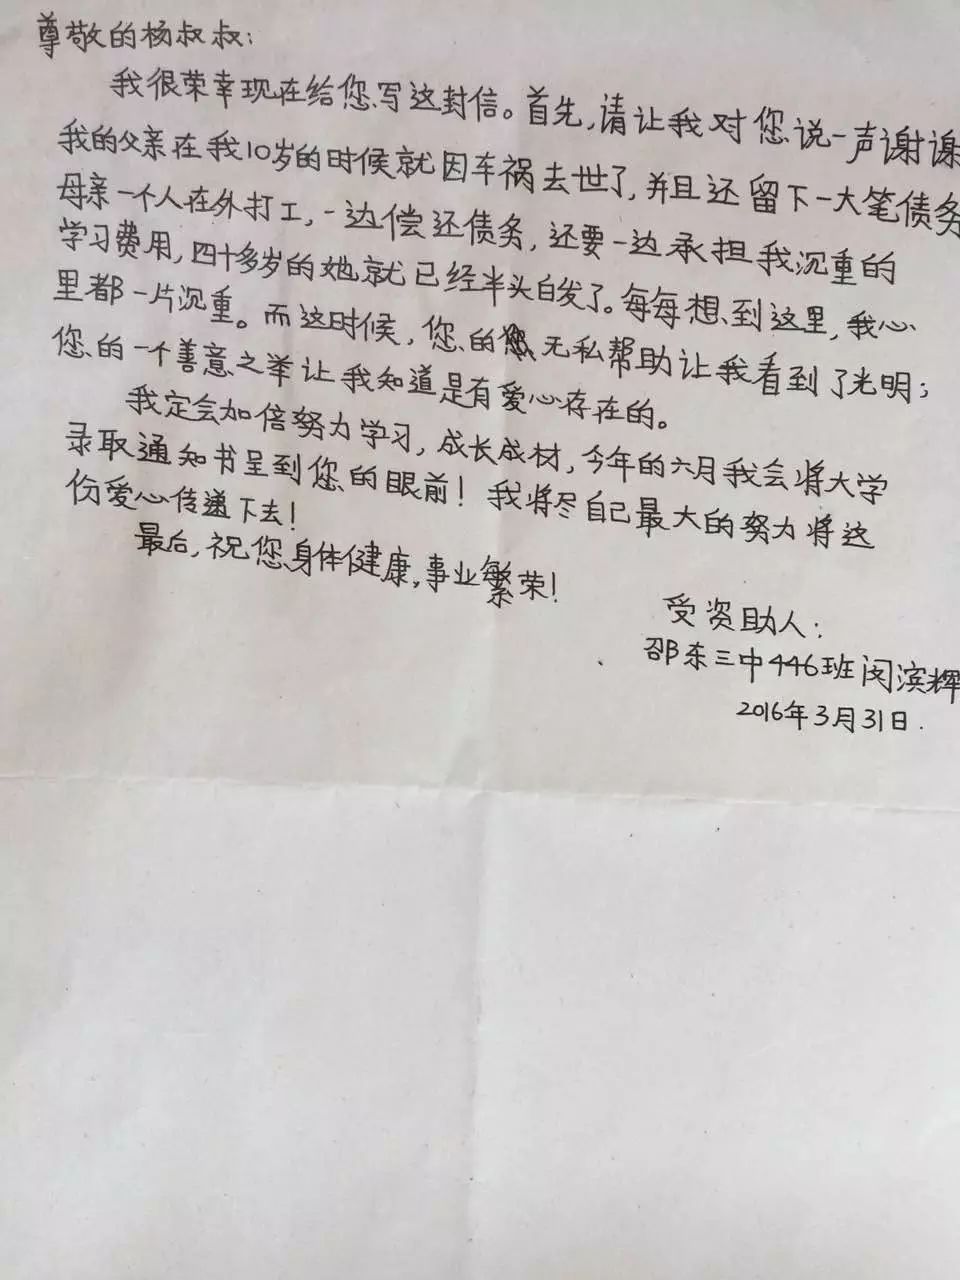 尊敬的杨叔叔:
我很荣幸现在给您写这封信。首先,请让我对您说一声谢谢
我的父亲在我10岁的时候就因车祸去世了,并且还留下一大笔债务
母亲一个人在外打工,一边偿还债务,还要一边承担我沉重的
学习费用,四十多岁的她就已经半头白发了。每每想到这里,我心
里都一片沉重。而这时候,您的无私帮助让我看到了光明;
您的一个善意之举让我知道是有爱心存在的。
我定会加倍努力学习,成长成材,今年的六月我会将大学
录取通知书呈到您的眼前!我将尽自己最大的努力将这
份爱心传递下去!
最后,祝您身体健康,事业繁荣!
受资助人:
邵东三中446班闵滨辉
2016年3月31日.